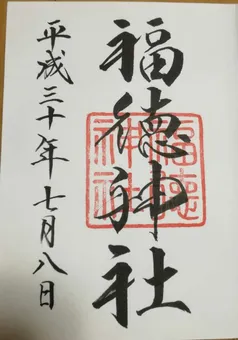 福徳神社
平成三十年七月八日
福徳神社